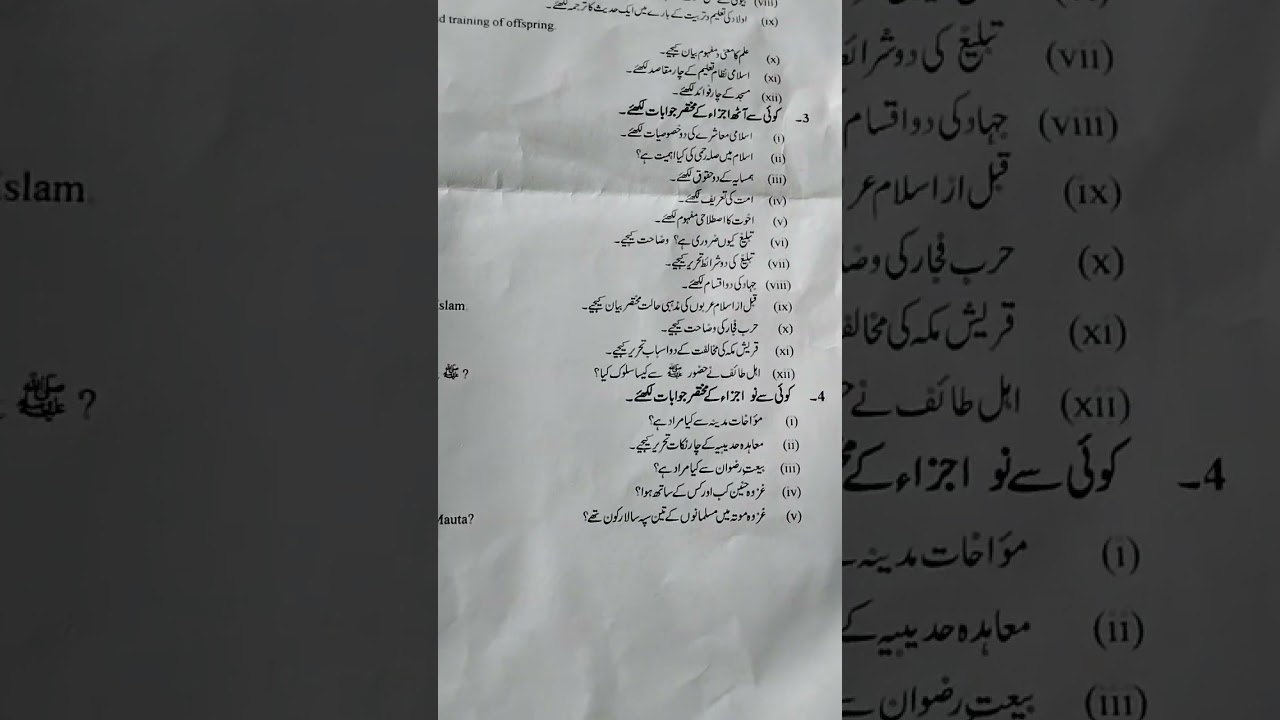 (viii)
(ix) اولاد کی تعلیم و تربیت کے بارے میں ایک حدیث کا ترجمہ لکھئے۔
d training of offspring.
(x) علم کا معنی و مفہوم بیان کیجیے۔
(xi) اسلامی نظام تعلیم کے چار مقاصد لکھئے۔
(xii) مسجد کے چار فوائد لکھئے۔
3۔ کوئی سے آٹھ اجزاء کے مختصر جوابات لکھئے۔
(i) اسلامی معاشرے کی دو خصوصیات لکھئے۔
(ii) اسلام میں صلہ رحمی کی کیا اہمیت ہے؟
(iii) ہمسایہ کے دو حقوق لکھئے۔
(iv) امت کی تعریف لکھئے۔
(v) اخوت کا اصطلاحی مفہوم لکھئے۔
(vi) تبلیغ کیوں ضروری ہے؟ وضاحت کیجیے۔
(vii) تبلیغ کی دو شرائط تحریر کیجیے۔
(viii) جہاد کی دو اقسام لکھئے۔
(ix) قبل از اسلام عربوں کی مذہبی حالت مختصر بیان کیجیے۔
slam.
(x) حرب فجار کی وضاحت کیجیے۔
(xi) قریش مکہ کی مخالفت کے دو اسباب تحریر کیجیے۔
(xii) اہل طائف نے حضور ﷺ سے کیسا سلوک کیا؟
ﷺ ?
4۔ کوئی سے نو اجزاء کے مختصر جوابات لکھئے۔
(i) مؤاخات مدینہ سے کیا مراد ہے؟
(ii) معاہدہ حدیبیہ کے چار نکات تحریر کیجیے۔
(iii) بیعتِ رضوان سے کیا مراد ہے؟
(iv) غزوہ حنین کب اور کس کے ساتھ ہوا؟
(v) غزوہ موتہ میں مسلمانوں کے تین سپہ سالار کون تھے؟
Mauta?
slam.
ﷺ ?
(vii) تبلیغ کی دو شرائط
(viii) جہاد کی دو اقسام
(ix) قبل از اسلام
(x) حرب فجار کی
(xi) قریش مکہ کی
(xii) اہل طائف نے
4۔ کوئی سے نو اجزاء کے
(i) مؤاخات مدینہ
(ii) معاہدہ حدیبیہ کے
(iii) بیعتِ رضوان